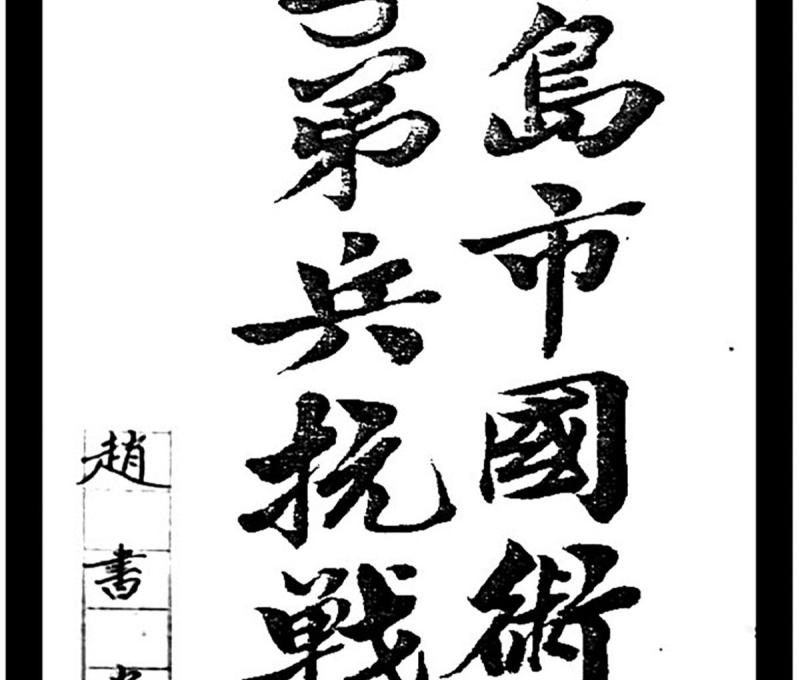 島市國術
弟兵抗戰
趙書